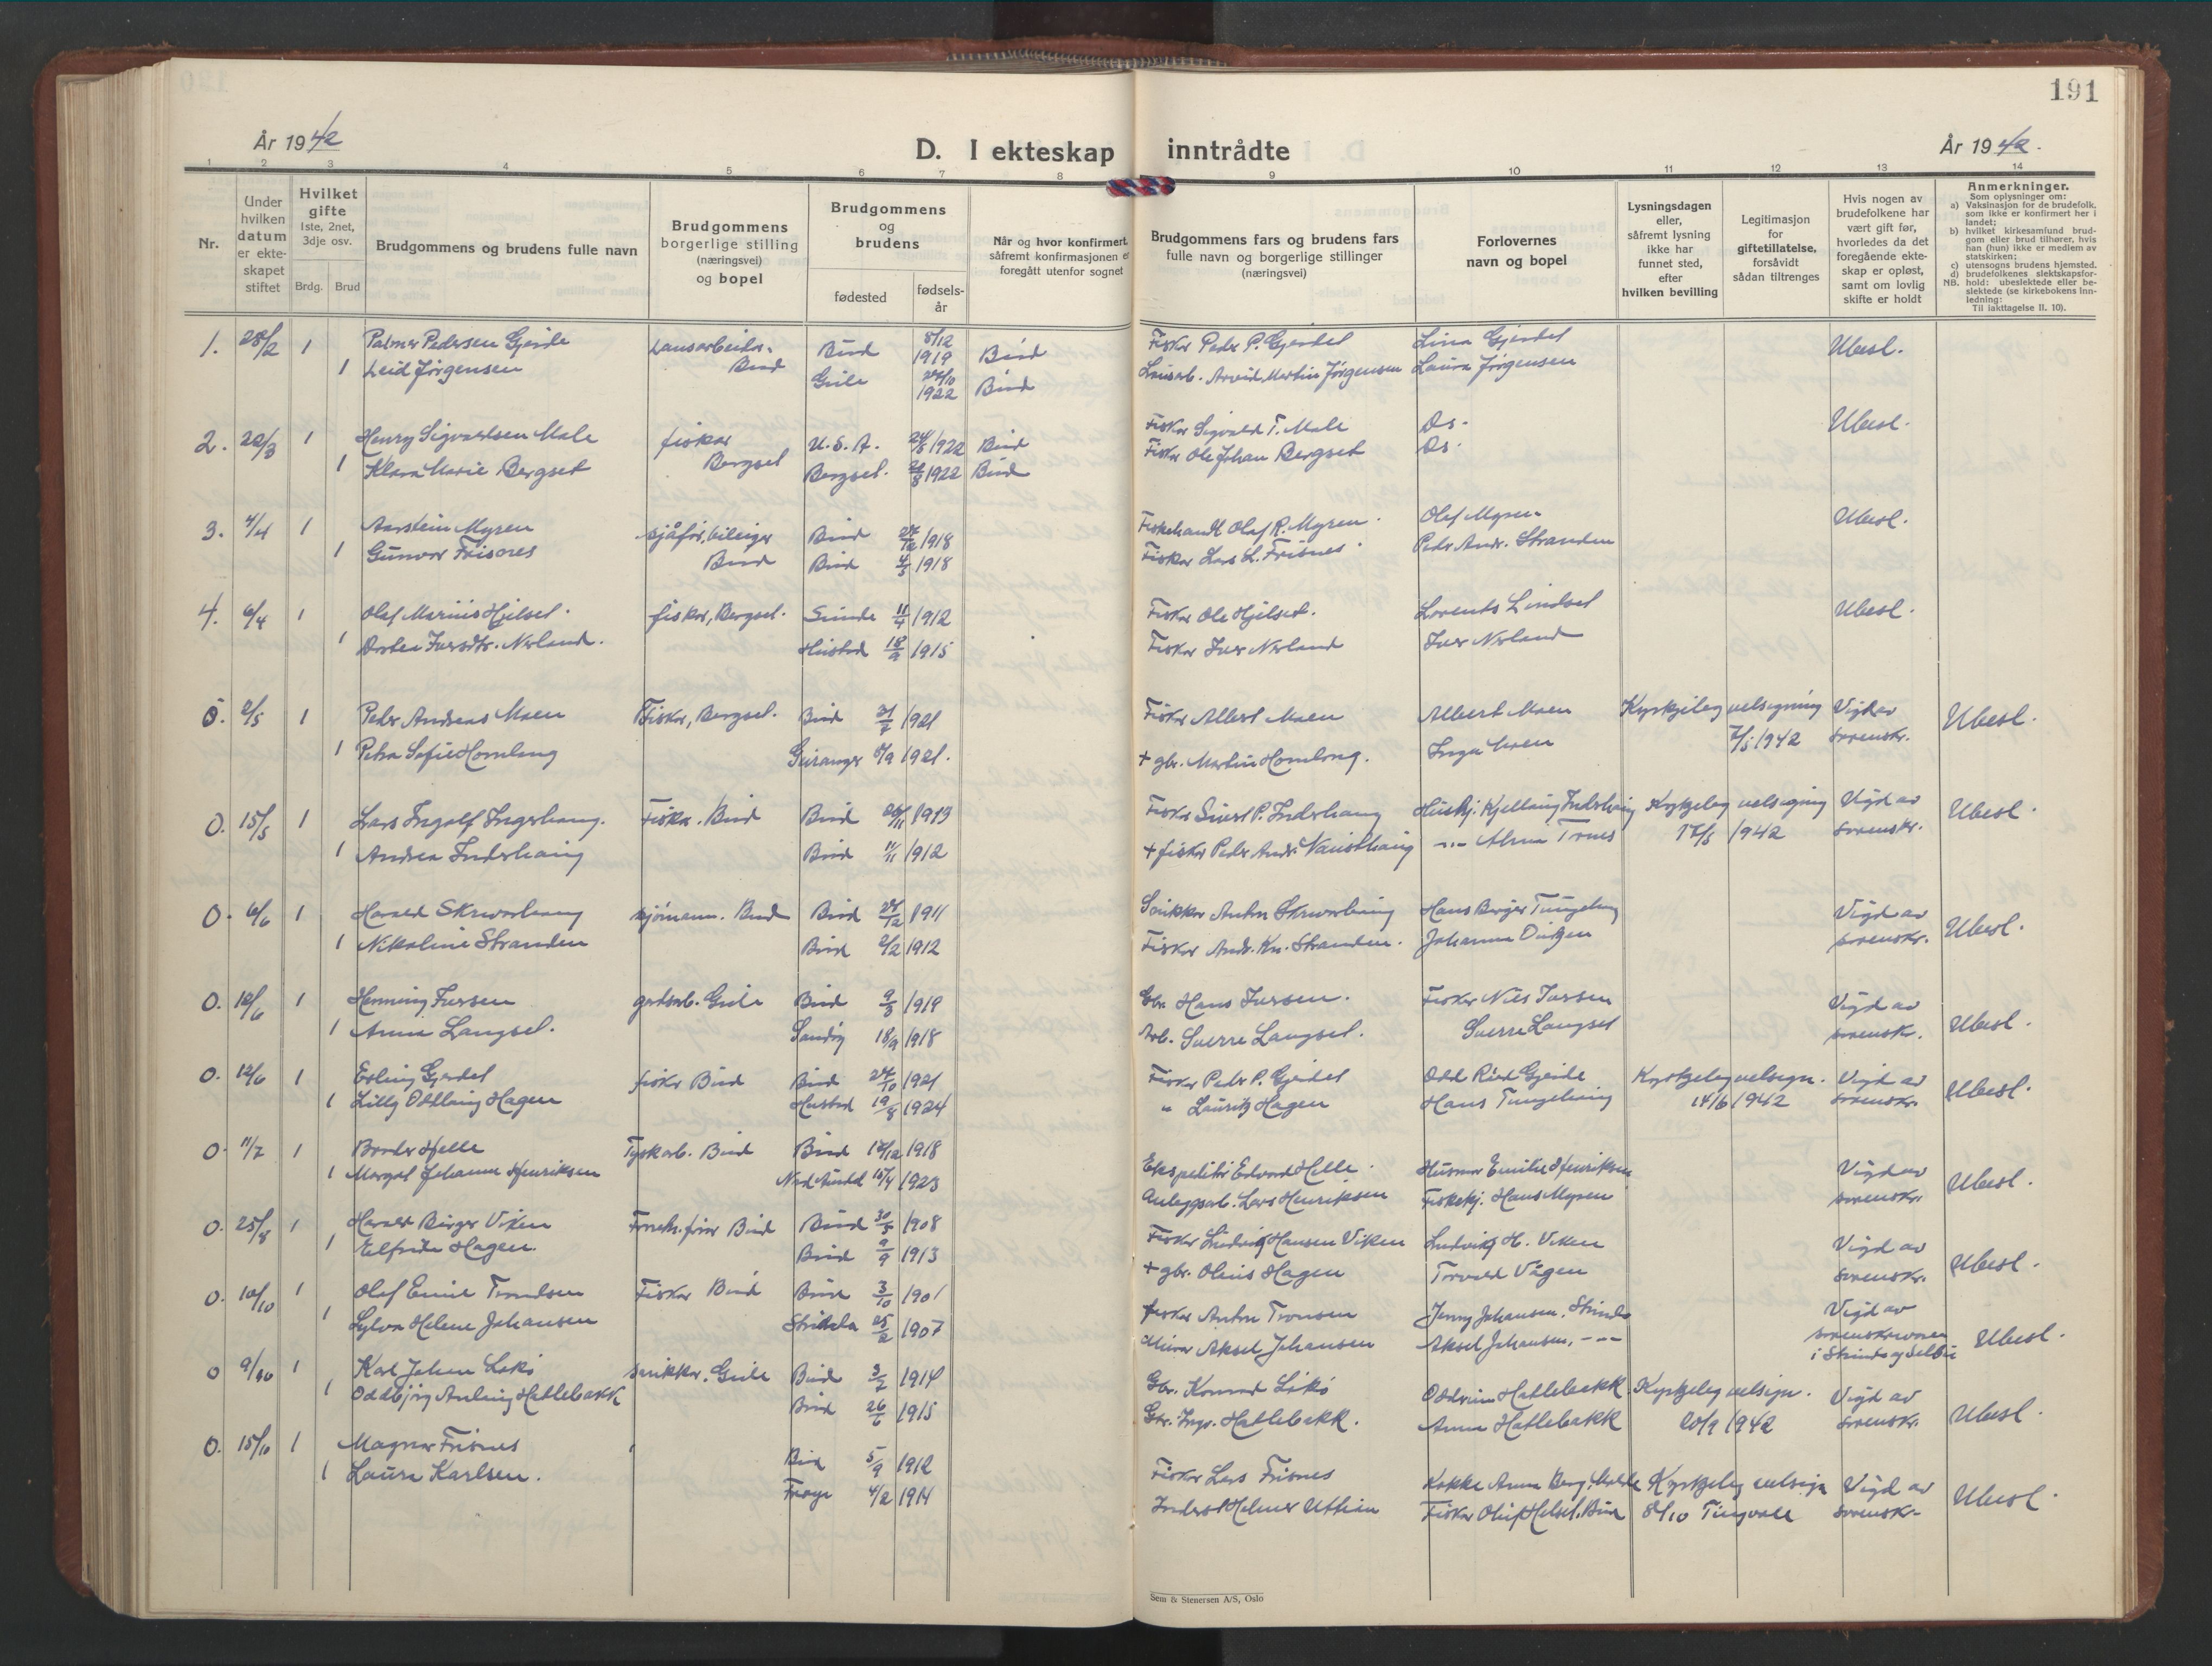 191
År 1942
D. I ekteskap inntrådte
År 1942.
1 2 3 4 5 6 7 8 9 10 11 12 13 14
Nr.
Under hvilken datum er ekteskapet stiftet
Hvilket gifte
1ste, 2net, 3dje osv.
Brdg. Brud
Brudgommens og brudens fulle navn
Brudgommens borgerlige stilling (næringsvei) og bopel
Brudgommens og brudens
fødested
fødselsår
Når og hvor konfirmert, såfremt konfirmasjonen er foregått utenfor sognet
Brudgommens fars og brudens fars fulle navn og borgerlige stillinger (næringsvei)
Forlovernes navn og bopel
Lysningsdagen eller, såfremt lysning ikke har funnet sted, efter hvilken bevilling
Legitimasjon for giftetillatelse, forsåvidt sådan tiltrenges
Hvis nogen av brudefolkene har vært gift før, hvorledes da det foregående ekteskap er opløst, samt om lovlig skifte er holdt
Anmerkninger.
Som oplysninger om:
a) Vaksinasjon for de brudefolk, som ikke er konfirmert her i landet;
b) hvilket kirkesamfund brudgom eller brud tilhører, hvis han (hun) ikke er medlem av statskirken;
c) utensogns brudens hjemsted.
d) brudefolkenes slektskapsforhold: ubeslektede eller beslektede (se kirkebokens Innledning:
NB.
Til iakttagelse II. 10).
1. 28/2 1 Palmer Pedersen Gjerde Bud 8/12 1919 Bud Fisker Peder P. Gjerdet Lina Gjerdet Ubesl.
1 Leid Jørgensen Bud Gule 24/10 1922 Bud Arvid Martin Jørgensen Laura Jørgensen
2. 22/3 1 Henry Sigvaldsen Male fisker U.S.A. 24/5 1922 Bud Fisker Sigvald T. Male Ds. Ubesl.
1 Klara Marie Bergset Bergset Bergset. 1922 Bud Fisker Ole Johan Bergset Ds.
3. 4/4 1 Aarstein Myren sjåfør, bileiger Bud 27/12 1918 Fiskehandl. Olaf R. Myren. Olaf Myren Ubesl.
1 Gunvor Frisnes Bud Bud 4/3 1918 Fisker Lars L. Frisnes. Peder Andr. Stranden
4. 6/4 1 Olaf Marius Hjelset. fisker, Bergset. Sunde 11/4 1912 Fisker Ole Hjelset. Lorents Lindset Ubesl.
1 Dortea Iversdtr. Nerland. Hustad 18/9 1915 Fisker Iver Nerland Iver Nerland
0. 2/5 1 Peder Andreas Moen Fisker, Bergset. Bud 21/7 1921 Fisker Albert Moen Albert Moen Kyrkjeleg velsigning Vigd av Ubesl.
1 Petra Sofie Homlong Geiranger 8/9 1921. + gbr. Martin Homlong. Inga Moen 7/5 1942 sorenskr.
0. 15/5 1 Lars Ingolf Fisker. Bud Bud 1913 Fisker Sivert P. Inderhaug Huskj. Kjellaug Inderhaug Kyrkjeleg velsigning Vigd av Ubesl.
1 Andrea Inderhaug Bud 11/11 1912 + fisker Peder Andr. Nausthaug -"- Alma Tornes 17/5 1942 sorenskr.
0. 6/6 1 Harald Skrivarhaug sjømann. Bud Bud 28/12 1911 Snikker Anton Skrivarhaug Hans Birger Tungehaug Vigd av Ubesl.
1 Nikoline Stranden Bud 2/2 1912 Fisker Andr. Kn. Stranden. Johanna sorenskr.
0. 10/6 1 Henning Iversen gardsarb. Gule Bud 9/3 1919 Gbr. Hans Iversen. Fisker Nils Iversen Vigd av Ubesl.
1 Anna Langset. Sandøy 18/9 1918 Arb. Sverre Langset. Sverre Langset sorenskr.
0. 12/6 1 Erling Gjerdet fisker Bud Bud 27/10 1921 Fisker Peder P. Gjerdet Odd Gjerde Kyrkjeleg velsign. Vigd av Ubesl.
1 Lilly Oddlaug Hagen Hustad 19/8 1924 " Lauritz Hagen Hans Tungehaug 14/6 1942 sorenskr.
0. 11/7 1 Broder Helle Tyskarb. Bud Bud 17/12 1918 Ekspeditør Edvard Helle. Husmor Emilie Henriksen Vigd av Ubesl.
1 Margot Johanna Henriksen 15/4 1923 Anleggsarb. Lars Henriksen Fiskekj. Hans Myren sorenskr.
0. 25/8 1 Harald Birger Viken Bud Bud 30/5 1908 Fisker Ludvig Hansen Viken Ludvig H. Viken Vigd av Ubesl.
1 Elfrida Hagen. Bud 9/9 1913 + gbr. Olaus Hagen Torvald Vågen sorenskr.
0. 10/10 1 Olaf Emil Trondsen Fisker Bud Bud 3/10 1901 fisker Anton Tronsen Jenny Johansen, Strinda Vigd av Ubesl.
1 Sylva Helene Johansen Strinda 25/2 1907 Aksel Johansen Aksel Johansen, -"- sorenskrivaren i Strinda og Selbu
0 9/10 1 Karl Johan Løkø snikker. Gule Bud 3/7 1914 Gbr. Konrad Løkø Oddrun Hatlebakk Kyrkjeleg velsign. Vigd av Ubesl.
1 Oddbjørg Hatlebakk Bud 26/6 1915 Gbr. Ingv. Hatlebakk. Anna Hatlebakk 20/9 1942 sorenskr.
0. 15/10 1 Magnar Frisnes Bud 5/9 1912 Fisker Lars Frisnes Kokke Anna Berg, Molde Kyrkjeleg velsign Vigd av Ubesl.
1 Laura Karlsen. Frøya 4/2 1914 Fisker Hjelset, Bud Tingvoll sorenskr.
Sem & Stenersen A/S, Oslo